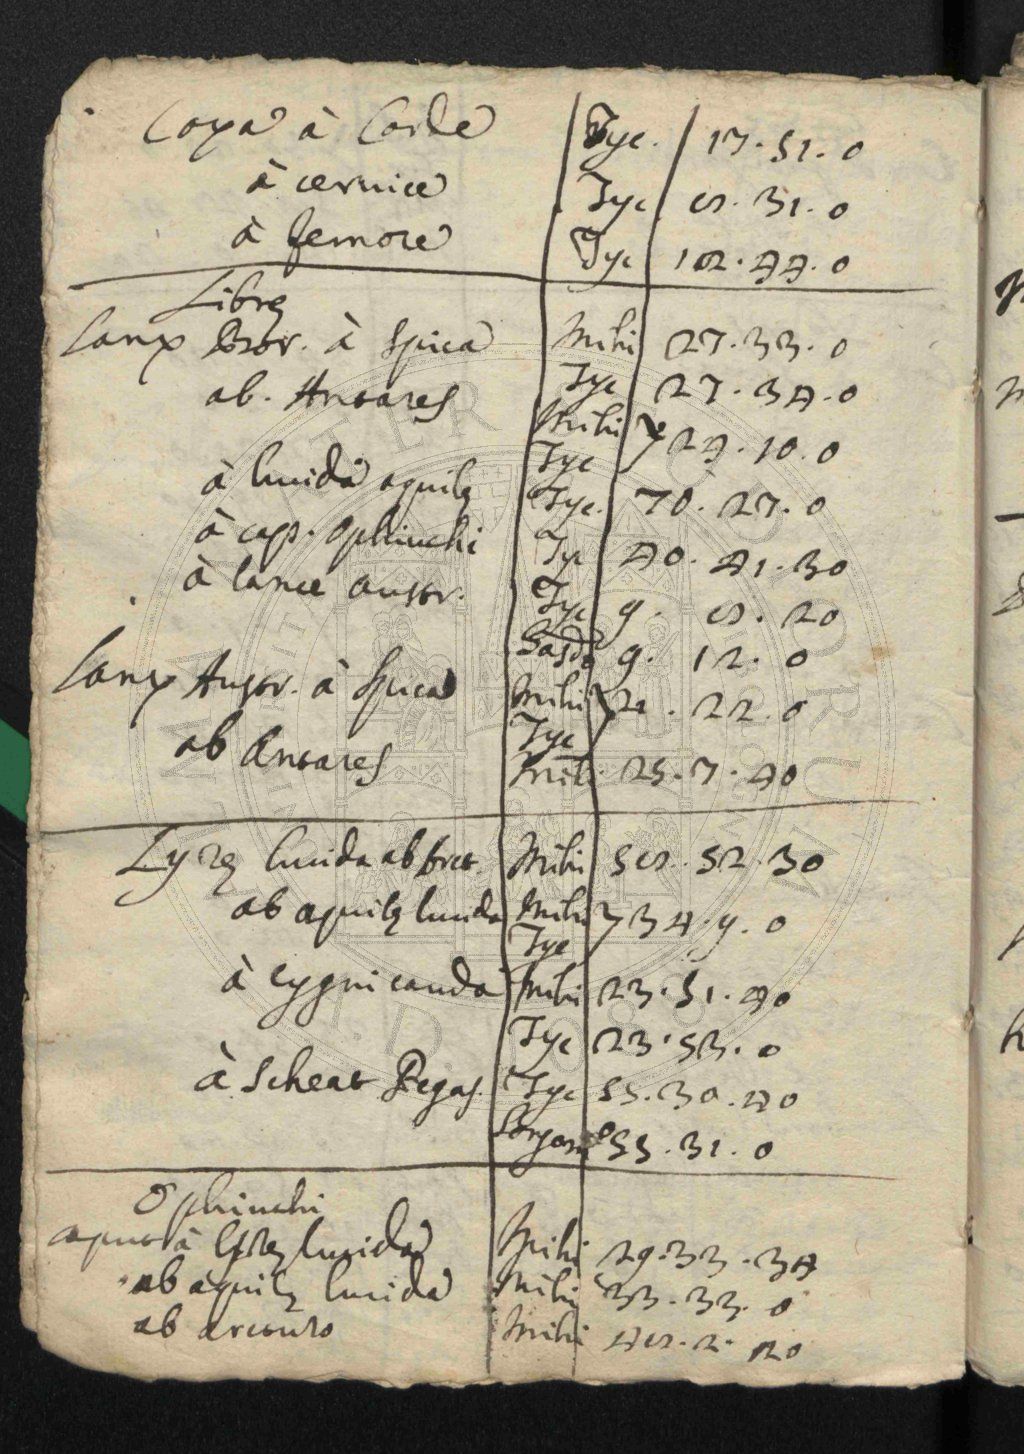 Coxa à Corde | Tyc. | 17. 51. 0
à cervice | Tyc | 8. 31. 0
à femore | Tyc | 18. 44. 0
Librę
Lanx Bor. à Spica | Mihi | 27. 33. 0
ab. Antares | Tyc | 27. 34. 0
Mihi Tyc } 24. 10. 0
à lucida aquilę | Tyc. | 70. 27. 0
à cap. Ophiuchi | Tyc | 40. 41. 30
à lance austr. | Tyc | 9. 8. 20
9. 12. 0
Lanx Austr. à Spica | Mihi Tyc } 21. 22. 0
ab Antares | Mihi | 25. 7. 40
Lyrę lucida ab Arct. | Mihi | 58. 52. 30
ab aquilę lucida | Mihi Tyc } 34. 9. 0
à Cygni cauda | Mihi | 23. 51. 40
Tyc | 23. 53. 0
à Scheat Pegas. | Tyc | 55. 30. 40
55. 31. 0
Ophiuchi
caput à Lyrę lucida | Mihi | 29. 33. 34
ab aquilę lucida | Mihi | 33. 33. 0
ab arcturo | Mihi | 48. 2. 20